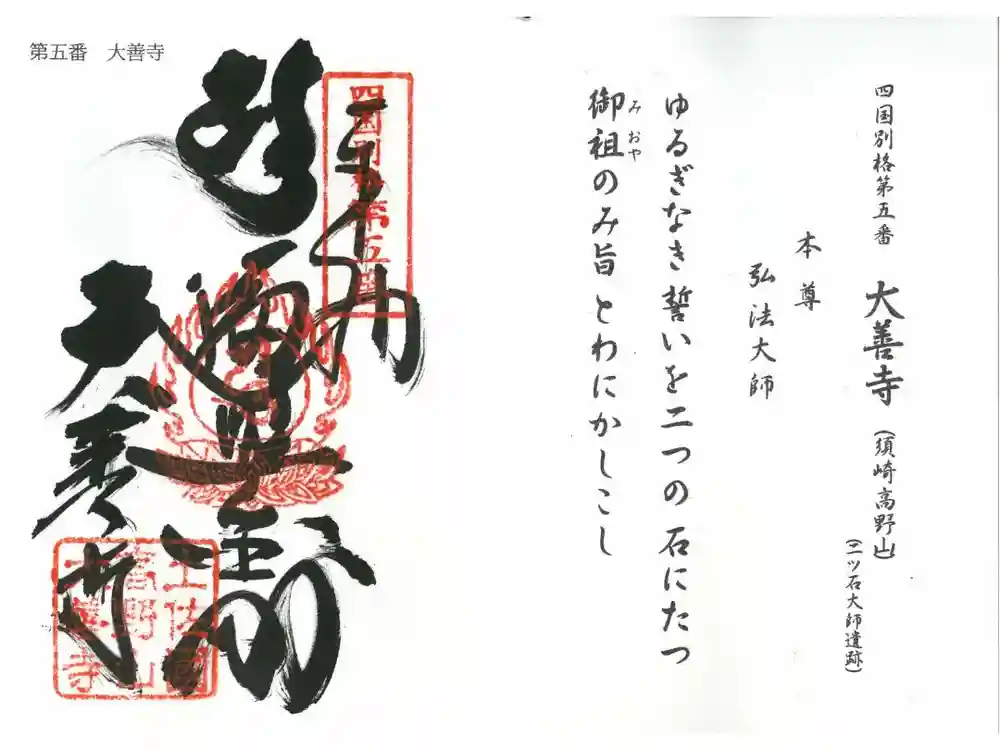 四国別格第五番　大善寺（須崎高野山）
（二ツ石大師遺跡）
本尊
弘法大師
ゆるぎなき誓いを二つの石にたつ
御祖のみ旨とわにかしこし
みおや
第五番　大善寺
四国別格第五番
奉納
大善寺
土佐國
高野山
大善寺